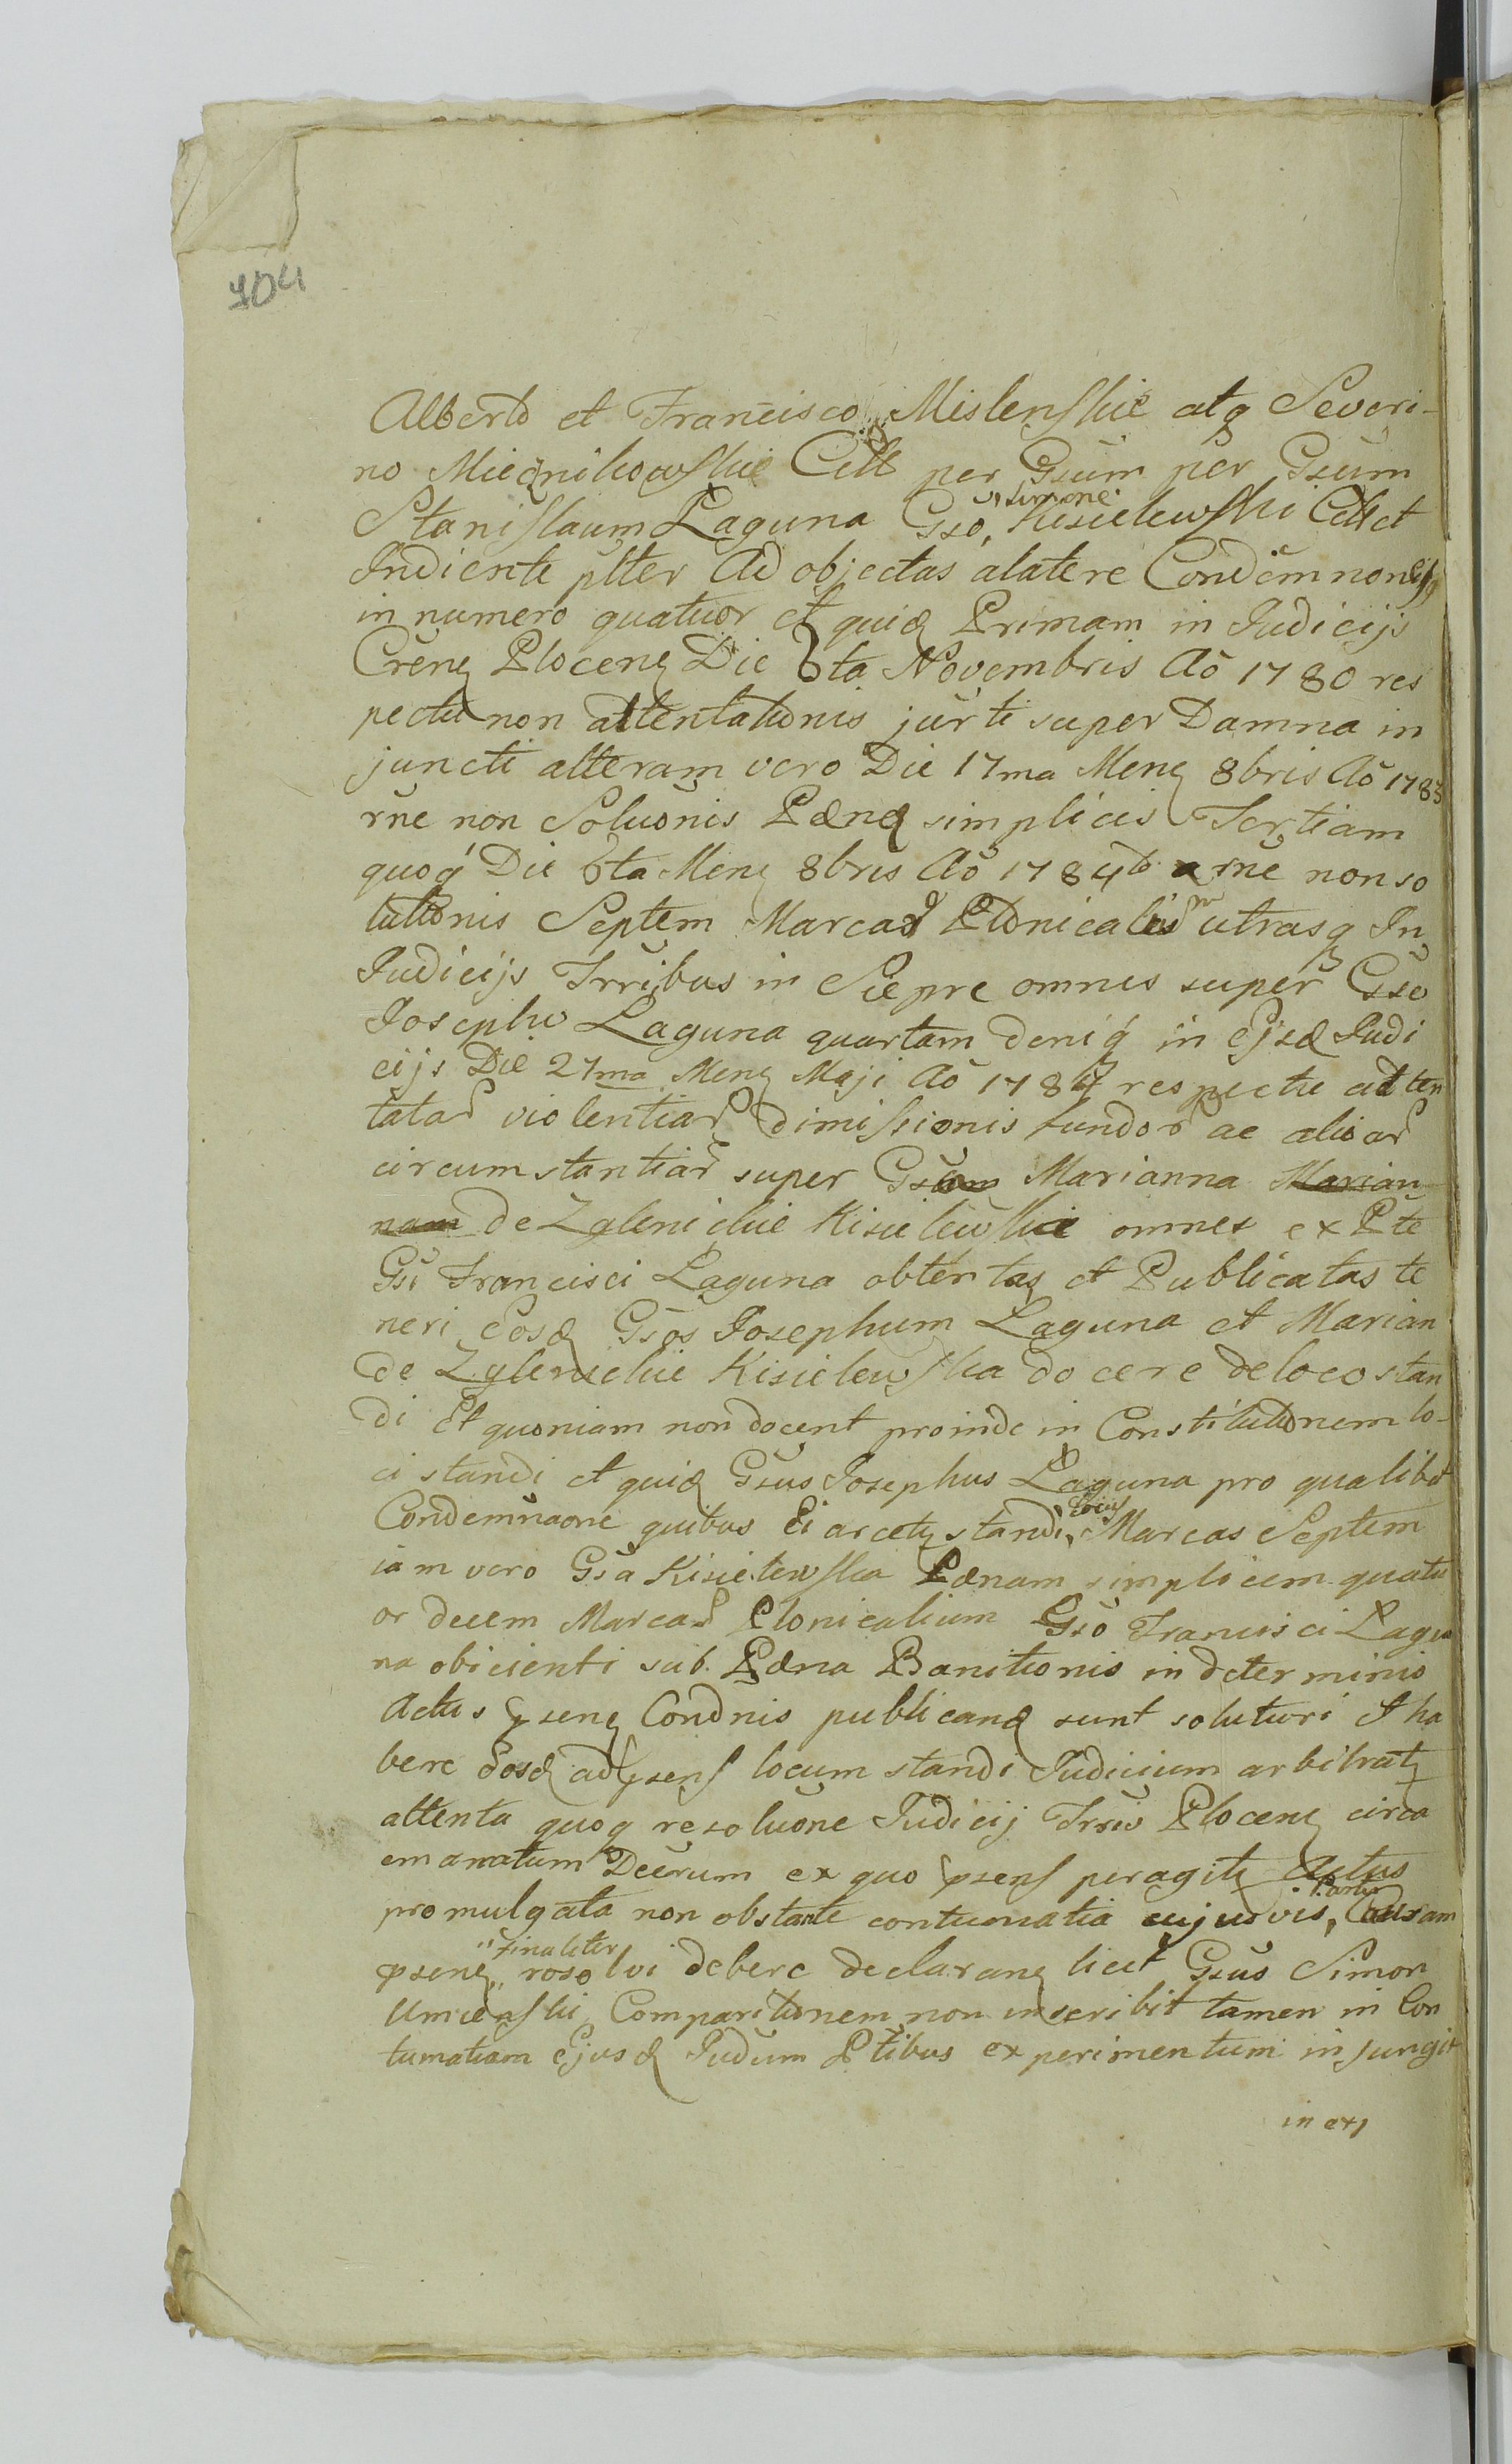 704
Alberto et Francisco Mislenskie atq Severi-
no Miecznikowskie Citt per Gsum per Gsum
Stanislaum Laguna Gso, Simone Kisielewski Citt et
Indiente plter Ad objectas a latere Condemnones
in numero quatuor et quid Primam in Judicijs
Crens Plocens Die 6ta Novembris Ao 1780 res
pectu non attentationis jurti super Damna in
juncti alteram vero Die 17ma Mens 8bris Ao 1783
rne non Soluonis Pæna simplicis Tertiam
quoq Die 6ta Mens 8bris Ao 1784to rne non so
lutionis Septem Marcar Plonicalium utrasq In
Judicijs Trribus in Sierpre omnes super Gso
Josepho Laguna quartam deniq in Ejsd Judi
cijs Die 27ma Mens Maji Ao 1787 respectu atten
tatar violentiar dimissionis fundor ac aliar
circumstantiar super Marianna Marian
nam de Zglenickie Kisielewskie omnes ex Pte
Gsi Francisci Laguna obtentas et Publicatas te
neri Eosd Gsos Josephum Laguna et Marian
de Zglenickie Kisielewska docere de loco stan
di Et quoniam non docent proinde in Constitutionem lo-
ci standi et quid Gsus Josephus Laguna pro qualibet
Condemnaone quibus Ei arcetur standi, locus Marcas Septem
iam vero Gsa Kisielewska Pænam simplicem quatu
or decem Marcar Plonicalium Gso Francisci Lagu
na obicienti sub Pæna Banitionis in determinio
Actus psens Condnis publicand sunt soluturi Et ha
bere Eosd ad psens locum standi Judicium arbitratr
attenta quoq resoluone Judicij Trris Plocens circa
emanatum Decrum ex quo psens peragitr Actus
promulgata non obstante contumatia cujusvis, Partis Causam
psens, finaliter resolvi debere declarans licet Gsus Simon
Umieński Comparitionem non inscribit tamen in Con
tumatiam Ejusd Judium Ptibus experimentum injungit
in exp